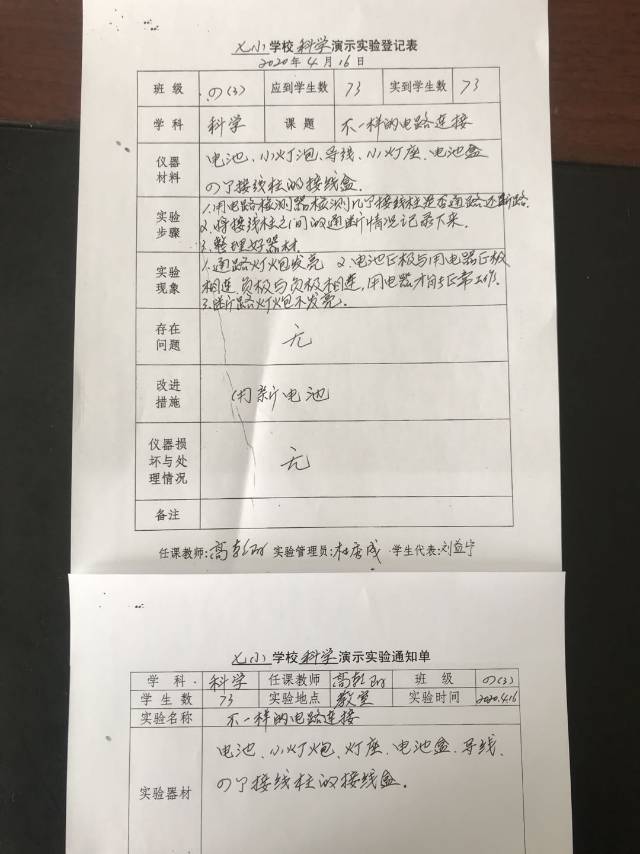 七小学校科学演示实验登记表
2020年4月16日
班级 四(3) 应到学生数 73 实到学生数 73
学科 科学 课题 不一样的电路连接
仪器材料 电池、小灯泡、导线、小灯座、电池盒
四个接线柱的接线盒.
实验步骤 1.用电路检测器检测几个接线柱是否通路还断路.
2.将接线柱之间的通断情况记录下来.
3.整理好器材.
实验现象 1.通路灯炮发亮 2.电池正极与用电器正极
相连 负极与负极相连,用电器才能正常工作.
3.断路灯炮不发亮.
存在问题 无
改进措施 用新电池
仪器损坏与处理情况 无
备注
任课教师: 实验管理员: 学生代表:刘益宁
七小学校科学演示实验通知单
学科 科学 任课教师 班级 四(3)
学生数 73 实验地点 教室 实验时间 2020.4.16
实验名称 不一样的电路连接
实验器材 电池、小灯炮、灯座、电池盒、导线.
四个接线柱的接线盒.